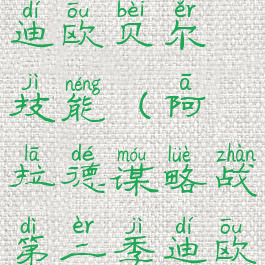 dí ōu bèi ěr
迪欧贝尔
jì néng ā
技能（阿
lā dé móu lüè zhàn
拉德谋略战
dì èr jì dí ōu
第二季迪欧